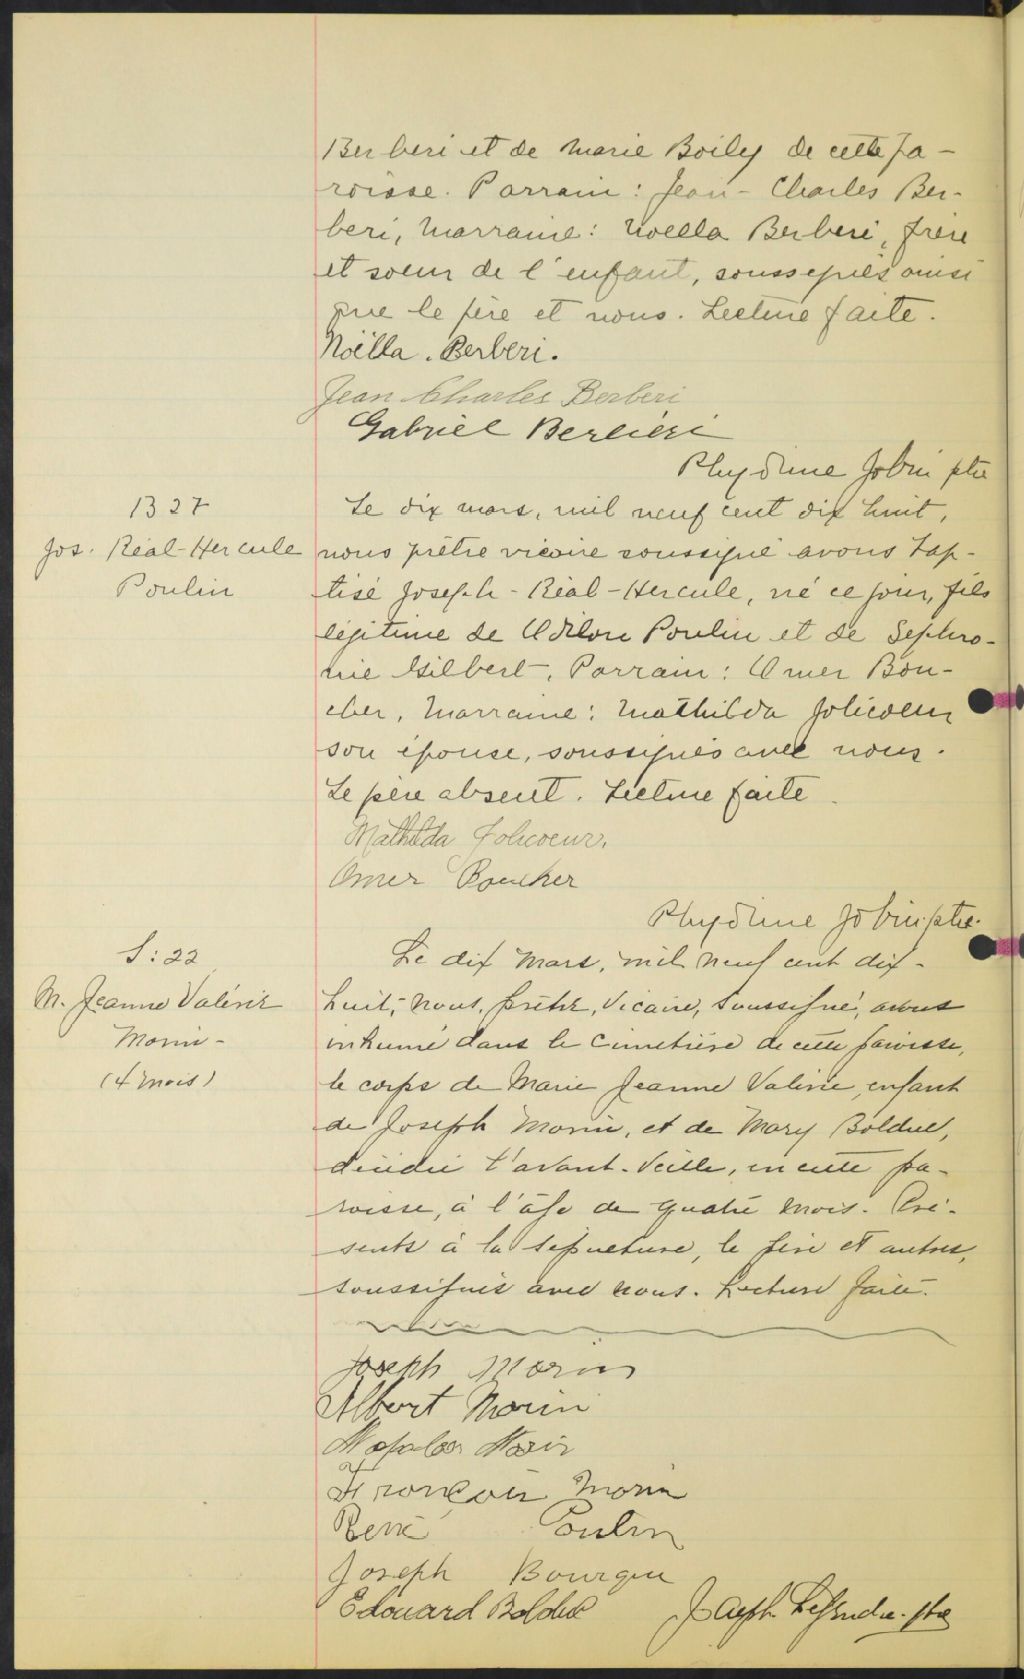 Berberi et de Marie Boily de cette pa-
roisse. Parrain : Jean - Charles Ber-
beri, Marraine : Noella Berberi, frère
et soeur de l'enfant, soussignés ainsi
que le père et nous. Lecture faite.
Noëlla . Berberi.
Jean Charles Berberi
Gabriel Berberi
Phydime Jobin ptre
B 27
Jos. Réal-Hercule
Poulin
Le dix mars, mil neuf cent dix huit,
nous prêtre vicaire soussigné avons bap-
tisé Joseph - Réal - Hercule, né ce jour, fils
légitime de Odilon Poulin et de Sephro-
nie Gilbert. Parrain : Omer Bou-
cher, Marraine : Mathilda Jolicoeur
son épouse, soussignés avec nous.
Le père absent. Lecture faite.
Mathilda Jolicoeur,
Omer Boucher
Phydime Jobin ptre.
S : 22
M. Jeanne Valérie
Morin -
(4 mois)
Le dix Mars, mil neuf cent dix-
huit, nous, prêtre, Vicaire, soussigné, avons
inhumé dans le cimetière de cette paroisse,
le corps de Marie Jeanne Valérie, enfant
de Joseph Morin, et de Mary Bolduc,
décédée l'avant-veille, en cette pa-
roisse, à l'âge de quatre mois. Pré-
sents à la sépulture, le père et autres,
soussignés avec nous. Lecture faite.
Joseph Morin
Albert Morin
Morin
François Morin
René Poulin
Joseph Bourque
Edouard Bolduc
Joseph Legendre. ptre